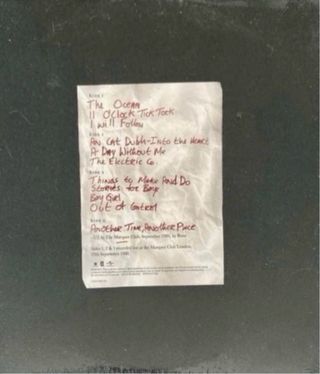 SIDE 1
The Ocean
11 O'Clock Tick Tock
I will Follow
SIDE 2
An Cat Dubh-Into the Heart
A Day Without Me
The Electric Co.
SIDE 3
Things to Make And Do
Stories for Boys
Boy Girl
Out of Control
SIDE 4
Another Time, Another Place
The Marquee Club, September 1980,
Sides 1, 2 & 3 recorded live at the Marquee Club London,
September 1980